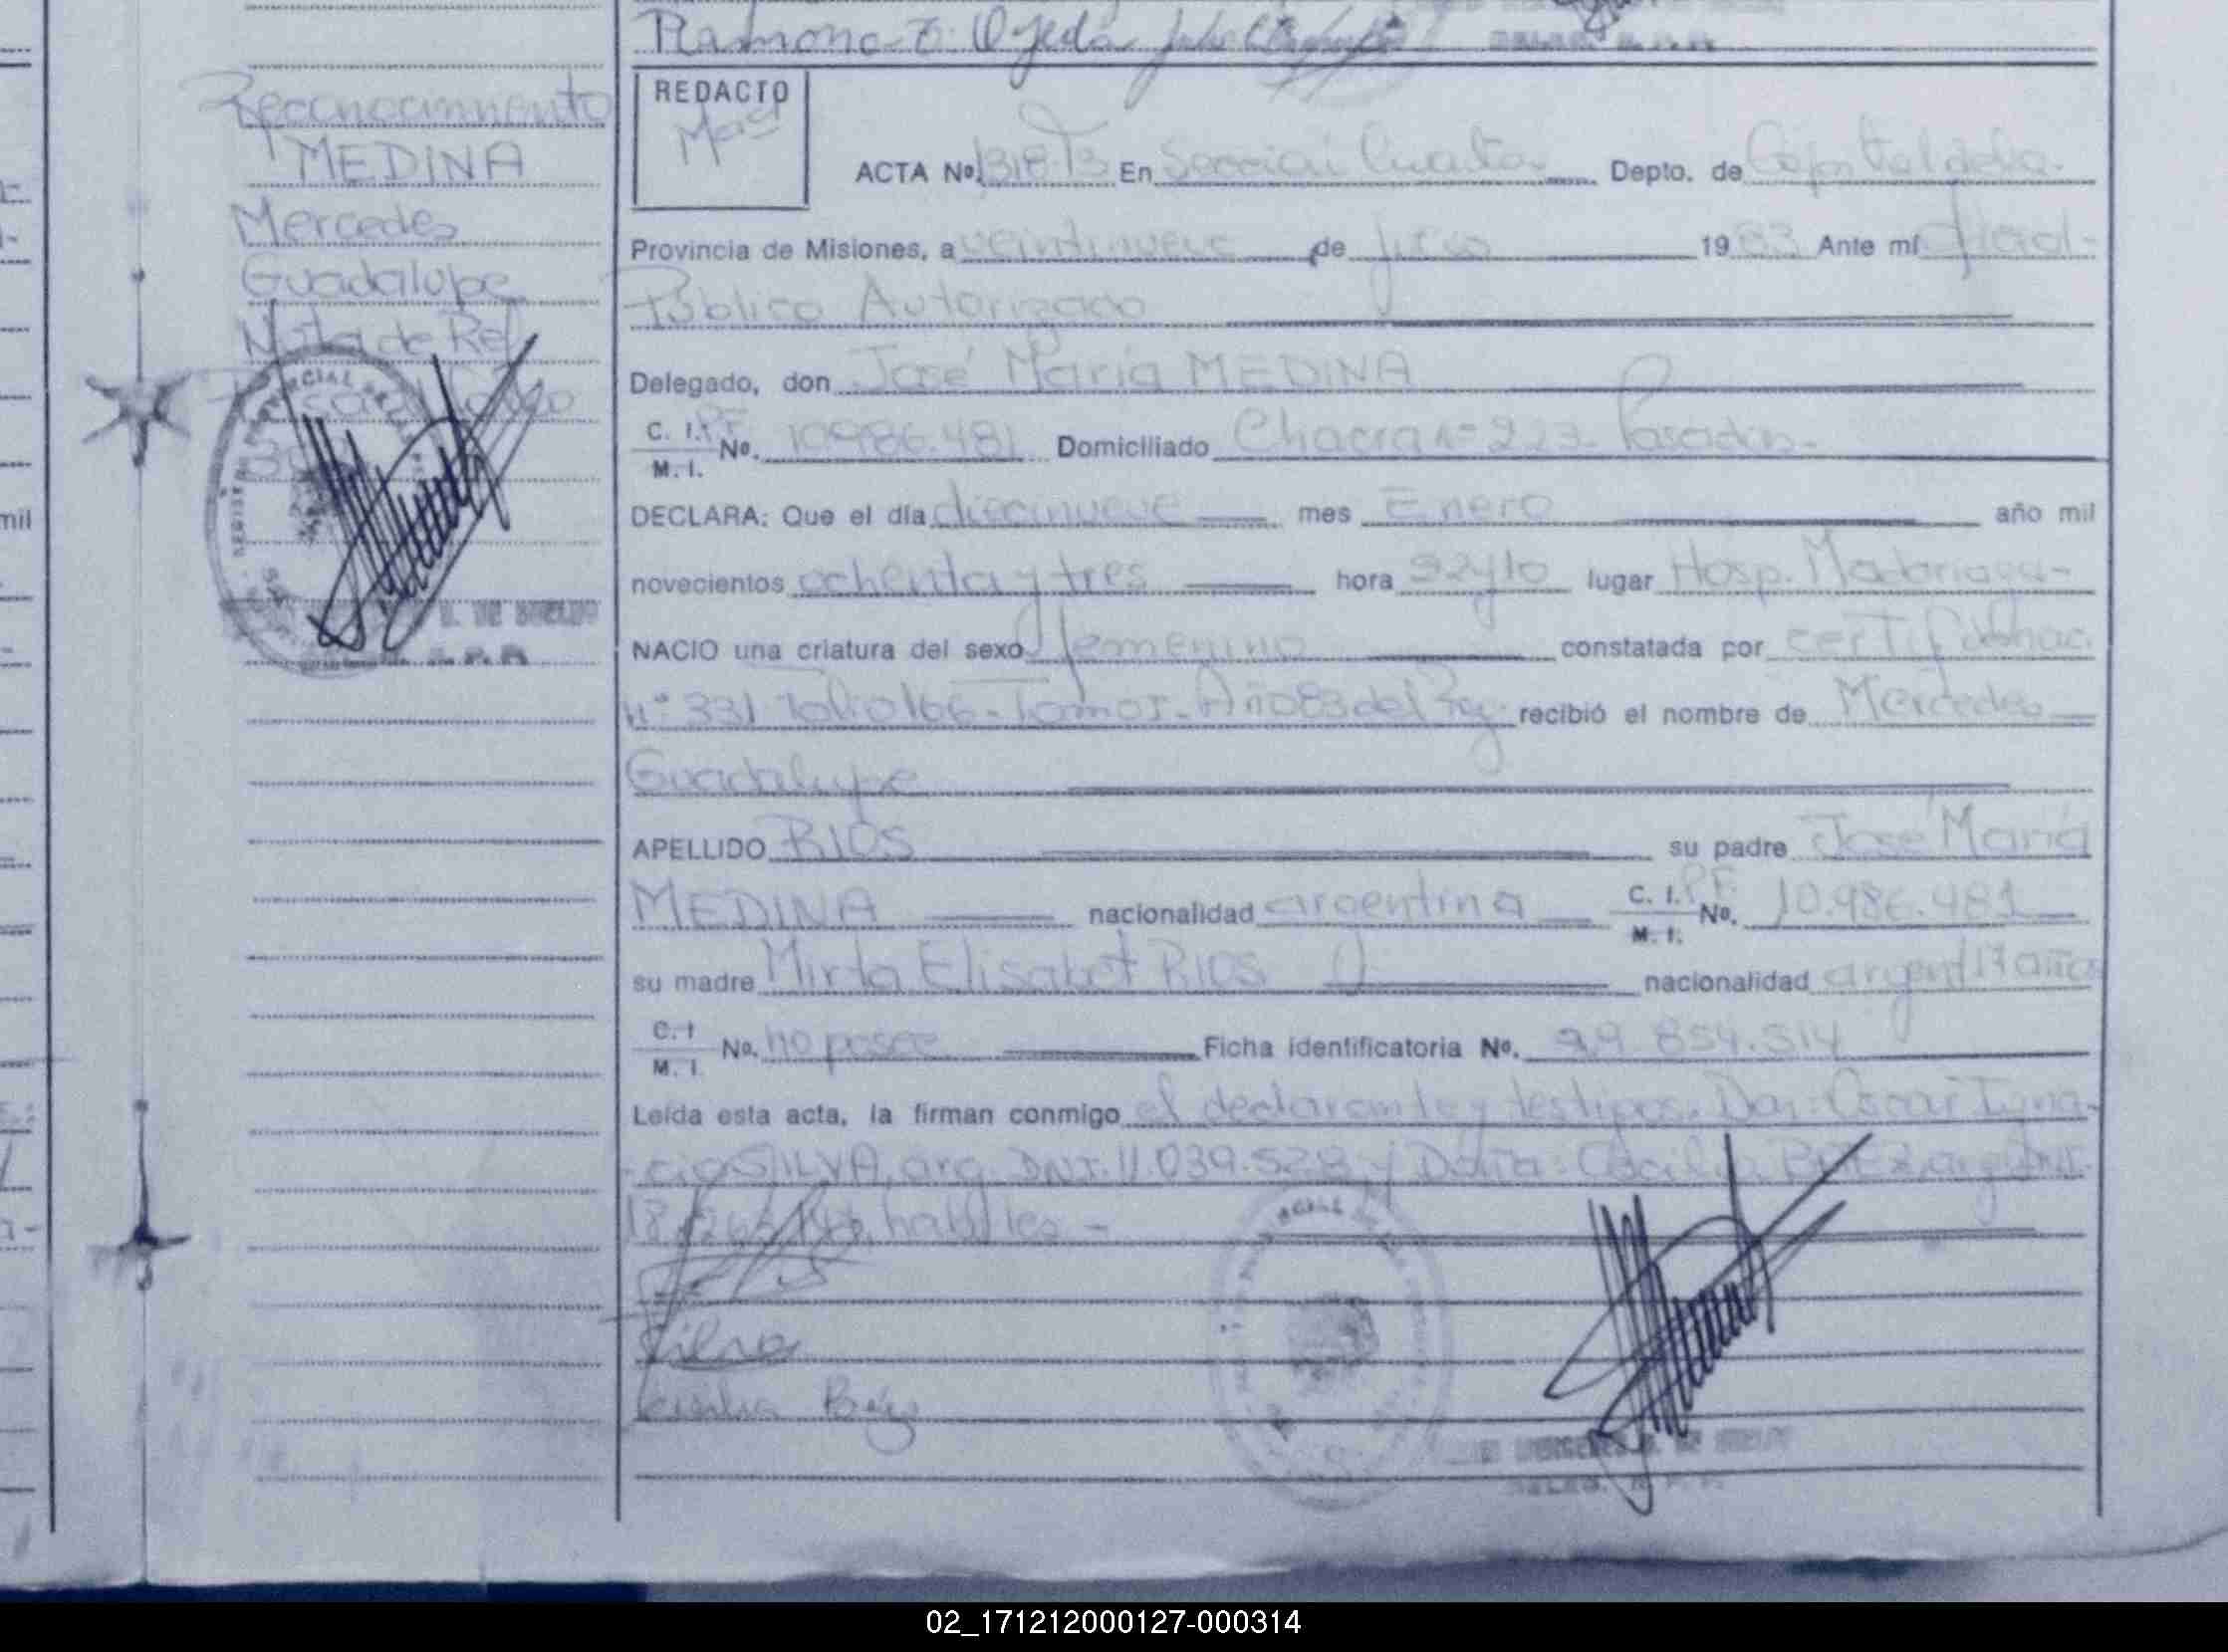 Ramona E. Ojeda
Reconocimiento
MEDINA
Mercedes
Guadalupe
Nota de Ref.
REDACTO
ACTA Nº 1318 T3 En Sección Cuarta Depto. de Capital de la
Provincia de Misiones, a veintinueve de 1983 Ante mí Oficial
Público Autorizado
Delegado, don José María MEDINA
C. I. P.F. M. I. No. 10.986.481 Domiciliado Chacra nº 223 Posadas-
DECLARA: Que el día diecinueve mes Enero año mil
novecientos ochenta y tres hora 22y10 lugar Hosp. Madariaga-
NACIO una criatura del sexo femenino constatada por certif de nac.
nº 331 Folio 166- Tomo I- Año 83 del recibió el nombre de Mercedes
Guadalupe
APELLIDO RIOS su padre José María
MEDINA nacionalidad argentina C. I. P.F. M. I. No. 10.986.481
su madre Mirta Elisabet RIOS nacionalidad argent 17 años
C. I M. I. No. no posee Ficha identificatoria No. 29.854.514
Leída esta acta, la firman conmigo el declarante y testigos. Don: Oscar Igna-
cio SILVA, arg. DNI. 11.039.528 y Doña: Cecilia
habiles -
Silva
Cecilia
02_171212000127-000314